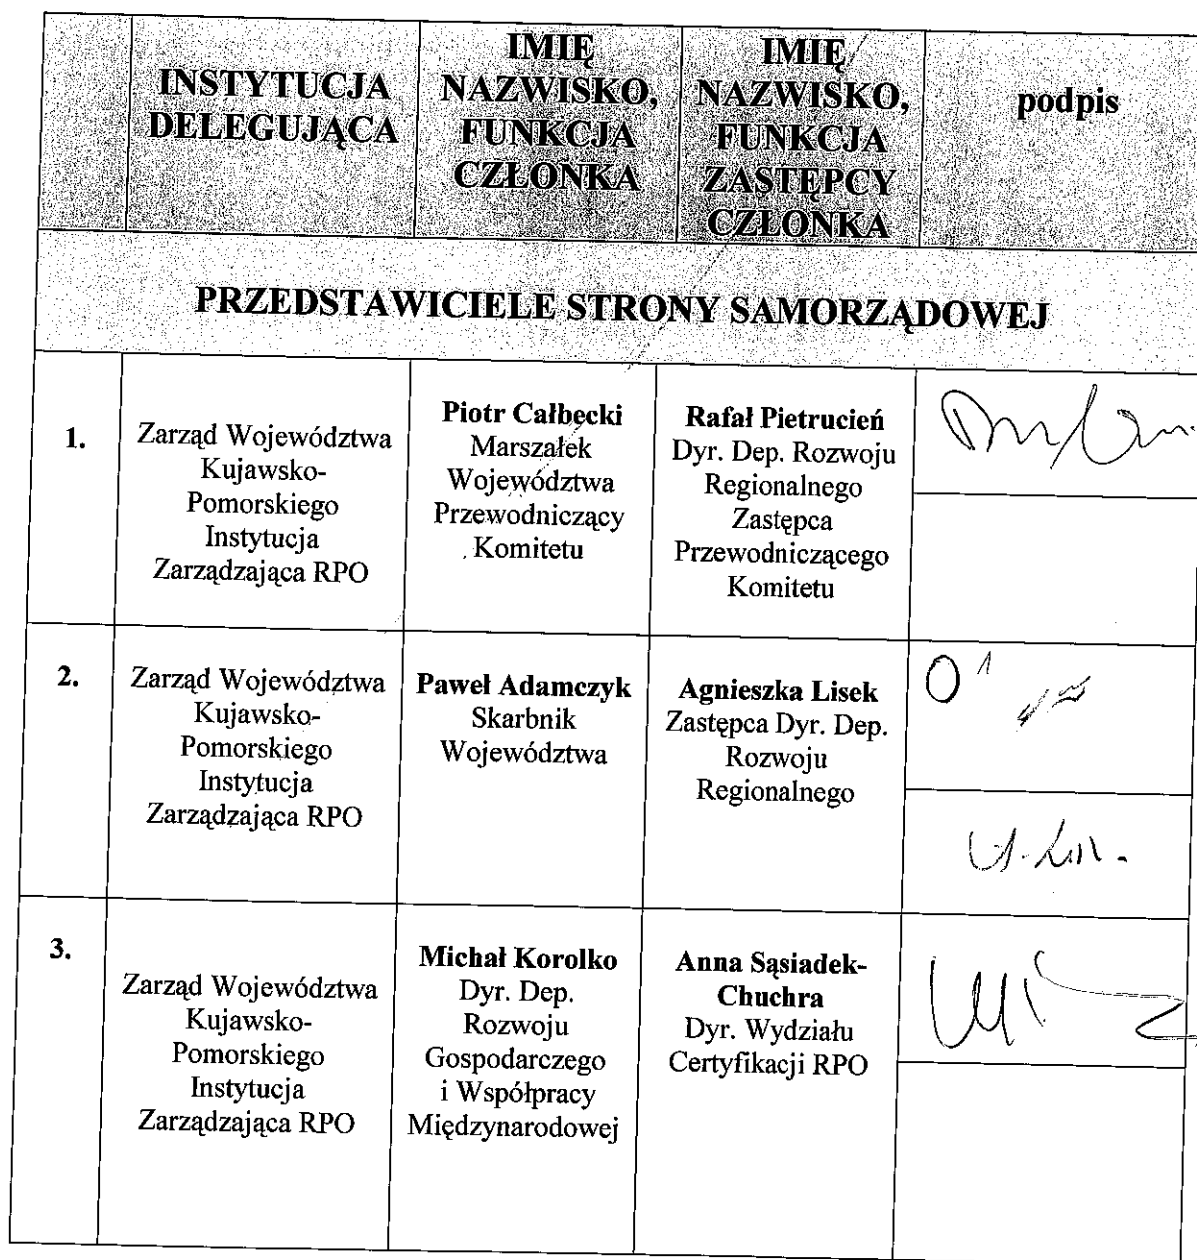 INSTYTUCJA
DELEGUJĄCA
IMIĘ
NAZWISKO,
FUNKCJA
CZŁONKA
IMIĘ
NAZWISKO,
FUNKCJA
ZASTĘPCY
CZŁONKA
podpis
PRZEDSTAWICIELE STRONY SAMORZĄDOWEJ
1.
Zarząd Województwa
Kujawsko-
Pomorskiego
Instytucja
Zarządzająca RPO
Piotr Całbęcki
Marszałek
Województwa
Przewodniczący
Komitetu
Rafał Pietrucień
Dyr. Dep. Rozwoju
Regionalnego
Zastępca
Przewodniczącego
Komitetu
2.
Zarząd Województwa
Kujawsko-
Pomorskiego
Instytucja
Zarządzająca RPO
Paweł Adamczyk
Skarbnik
Województwa
Agnieszka Lisek
Zastępca Dyr. Dep.
Rozwoju
Regionalnego
3.
Zarząd Województwa
Kujawsko-
Pomorskiego
Instytucja
Zarządzająca RPO
Michał Korolko
Dyr. Dep.
Rozwoju
Gospodarczego
i Współpracy
Międzynarodowej
Anna Sąsiadek-
Chuchra
Dyr. Wydziału
Certyfikacji RPO